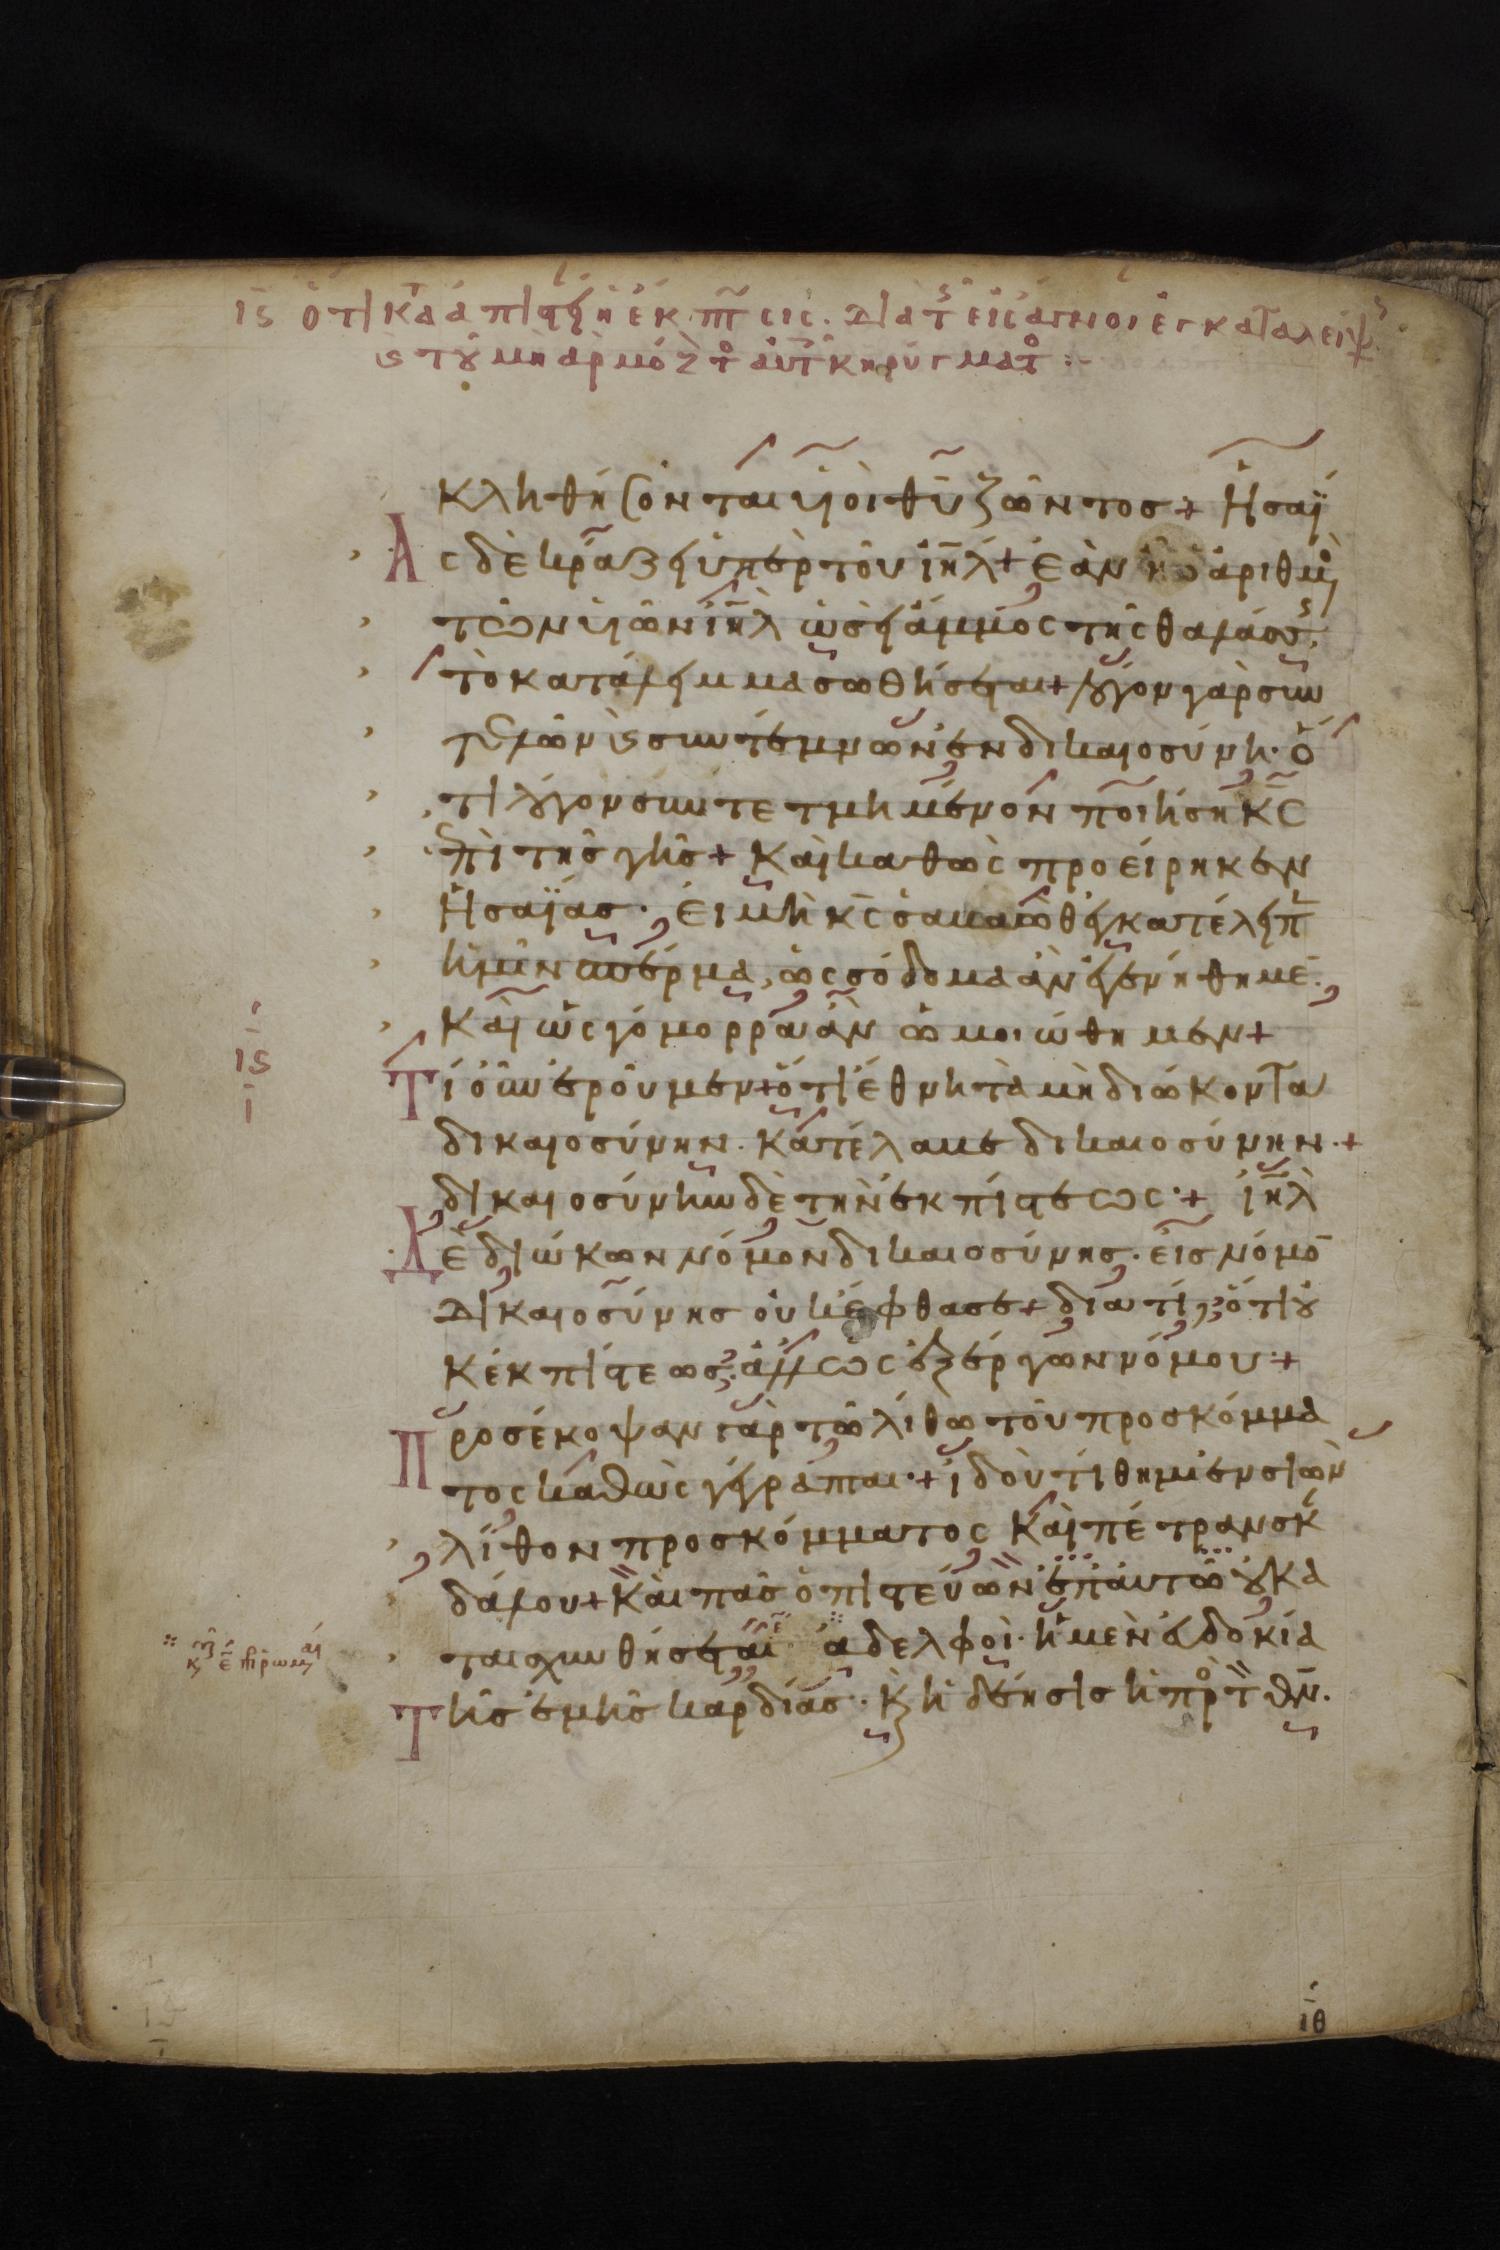 κληθήσονται υἱοὶ θυ ζῶντος + Ἠσαΐ
ας δὲ κράζει ὑπὲρ τοῦ ιηλ + ἐὰν ἦ ὁ ἀριθμὸς
τῶν υἱῶν ιηλ ὡσεὶ ἄμμος τῆς θαλάσσης
τὸ κατάλειμμα σωθήσεται + λόγον γὰρ συν
τελῶν καὶ συντέμνων ἐν δικαιοσύνη · ὅ
τι λόγον συντετμημένον ποιήσει κς
ἐπὶ τῆς γῆς + Καὶ καθὼς προείρηκεν
Ἠσαΐας · Εἰ μὴ κς σαβαὼθ ἐγκατέλειπεν
ἡμῖν σπέρμα, ὡς σόδομα ἂν ἐγενήθημεν ·
Καὶ ὡς γόμορρα ἂν ὡμοιώθημεν +
Τί οὖν ἐροῦμεν + ὅτι ἔθνη τὰ μὴ διώκοντα
δικαιοσύνην · κατέλαβε δικαιοσύνην · +
δικαιοσύνην δὲ τὴν ἐκ πίστεως · + ιηλ
Δὲ διώκων νόμον δικαιοσύνης · εἰς νόμον
Δικαιοσύνης οὐκ ἔφθασε + διατί, ὅτι οὐ
κ ἐκ πίστεως · ἀλλ ὡς ἐξ ἔργων νόμου · +
Προσέκοψαν γὰρ τῶ λίθω τοῦ προσκόμμα
τος καθὼς γέγραπται · + ἰδοὺ τίθημι ἐν σιὼν
λίθον προσκόμματος Καὶ πέτραν σκαν
δάλου + Καὶ πᾶς ὁ πιστεύων ἐπ αυτῶ οὐ κα
ταισχυνθήσεται · ἀδελφοὶ · ἡ μὲν εὐδοκία
Τῆς ἐμῆς καρδίας · Καὶ ἡ δέησις ἡ πρὸς τὸν θν ·
ιθ